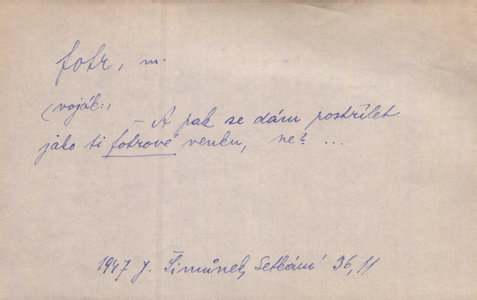 fotr, m.
(voják:)
– A pak se dám postřílet
jako ti fotrové venku, ne? ...
1947 J. Šimůnek, Setkání 36, 11